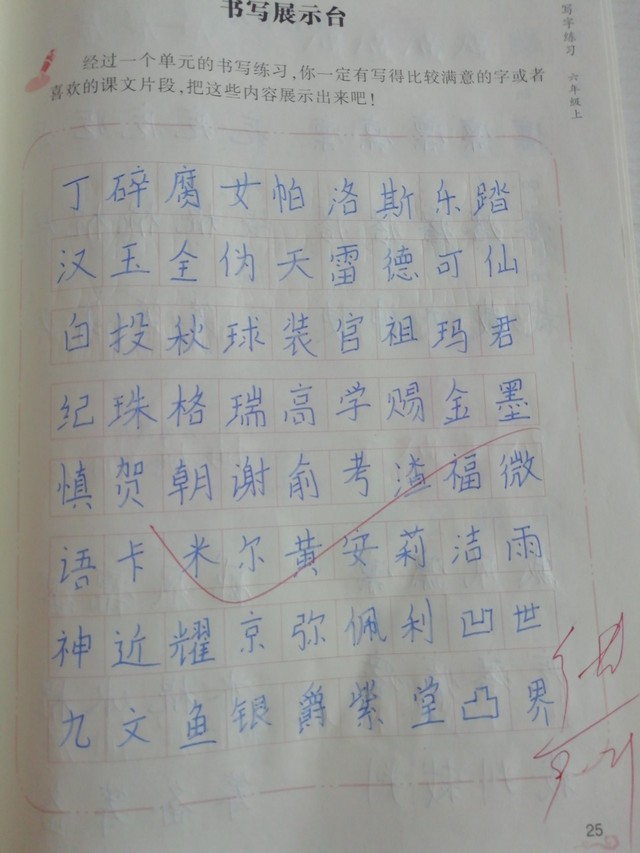 书写展示台
经过一个单元的书写练习,你一定有写得比较满意的字或者
喜欢的课文片段,把这些内容展示出来吧!
写字练习 六年级上
丁碎腐女帕洛斯乐踏
汉玉全伪天雷德可仙
白投秋球装官祖玛君
纪珠格瑞高学赐金墨
慎贺朝谢俞考渣福微
语卡米尔黄安莉洁雨
神近耀京弥佩利凹世
九文鱼银爵紫堂凸界
25